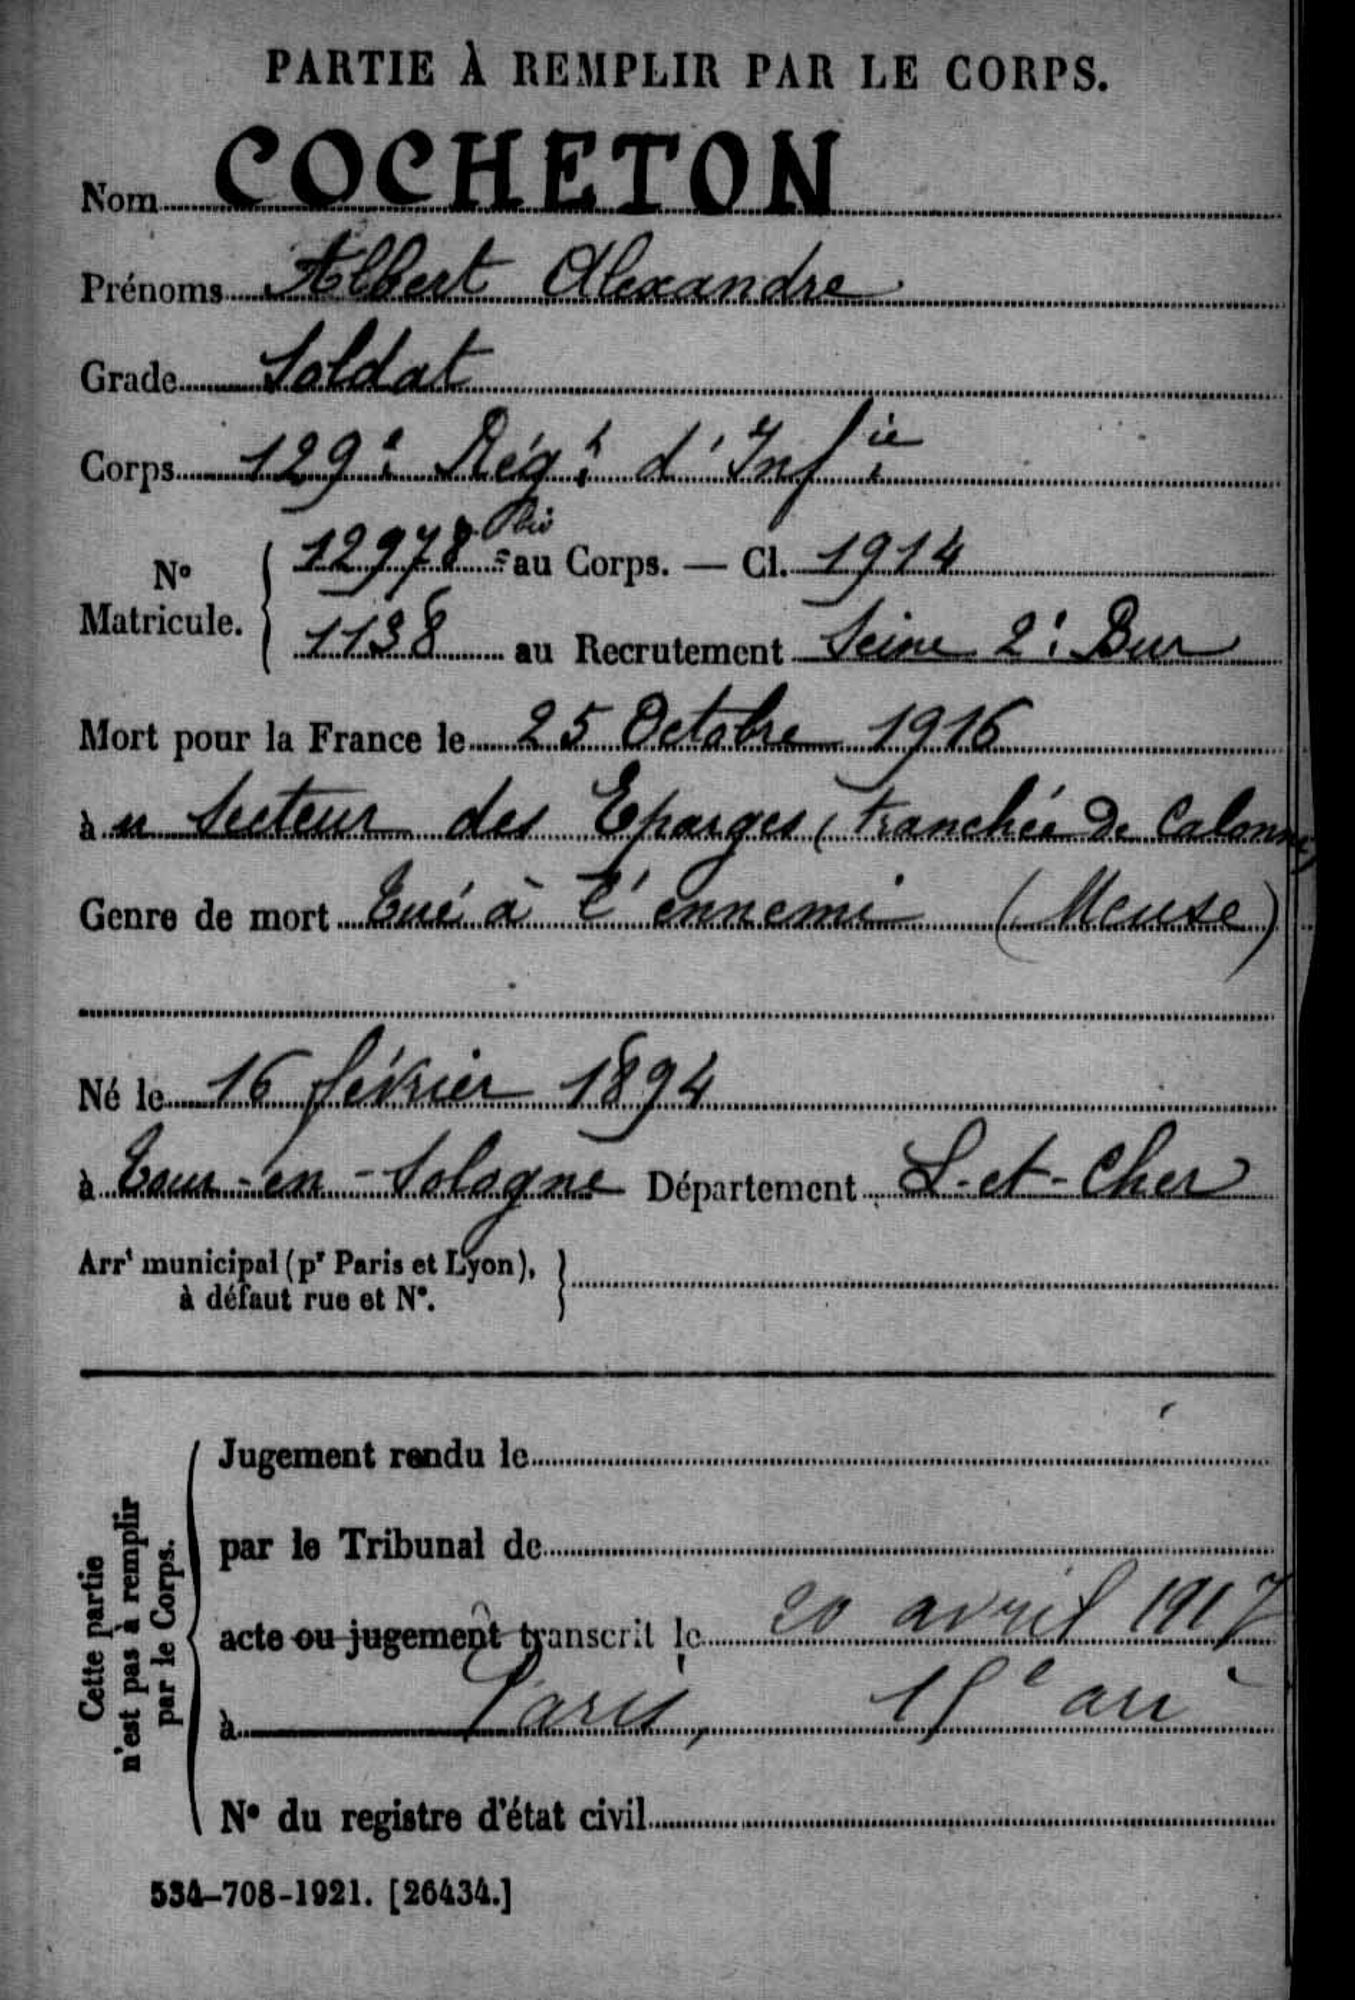 PARTIE À REMPLIR PAR LE CORPS.
Nom COCHETON
Prénoms Albert Alexandre
Grade Soldat
Corps 129e Régt d'Infie
N° Matricule. 12978 bis au Corps. — Cl. 1914
1138 au Recrutement Seine 2e Bur
Mort pour la France le 25 Octobre 1916
à u Secteur des Eparges (tranchée de Calonne)
Genre de mort Tué à l'ennemi (Meuse)
Né le 16 février 1894
à Tour-en-Sologne Département L-et-Cher
Arrt municipal (pr Paris et Lyon),
à défaut rue et N°.
Cette partie
n'est pas à remplir
par le Corps.
Jugement rendu le
par le Tribunal de
acte ou jugement transcrit le 20 avril 1917
à Paris, 15e arr
N° du registre d'état civil
534-708-1921. [26434.]